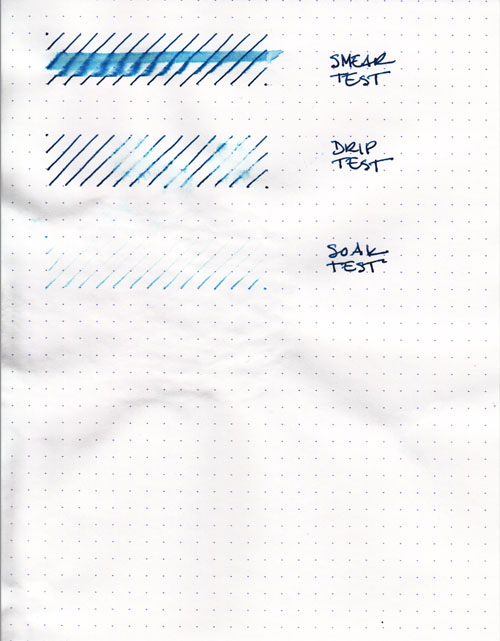 SMEAR
TEST
DRIP
TEST
SOAK
TEST